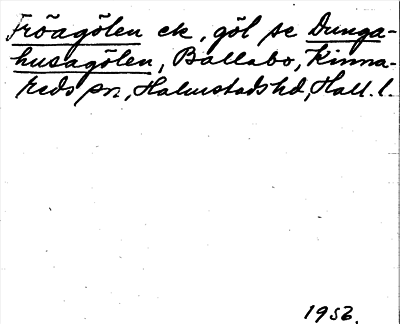 Fröagölen ek, göl se Dunga-
husagölen, Ballabo, Kinna-
reds sn, Halmstads hd, Hall. l.
1952.